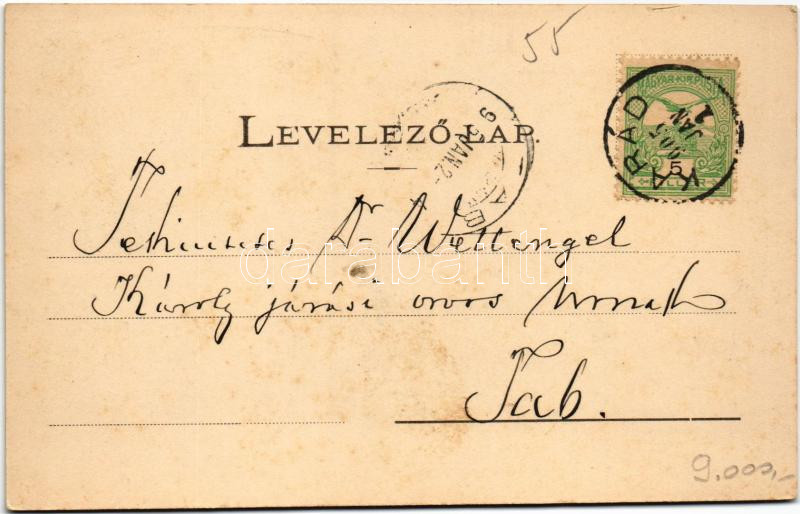 55
MAGYAR KIR. POSTA
KARÁD
905
JAN
1
5
LEVELEZŐ-LAP.
905 JAN. 2
TAB
Tekintetes Dr Wettengel
darabanth
Károly járási orvos Úrnak
Tab.
9.000,-